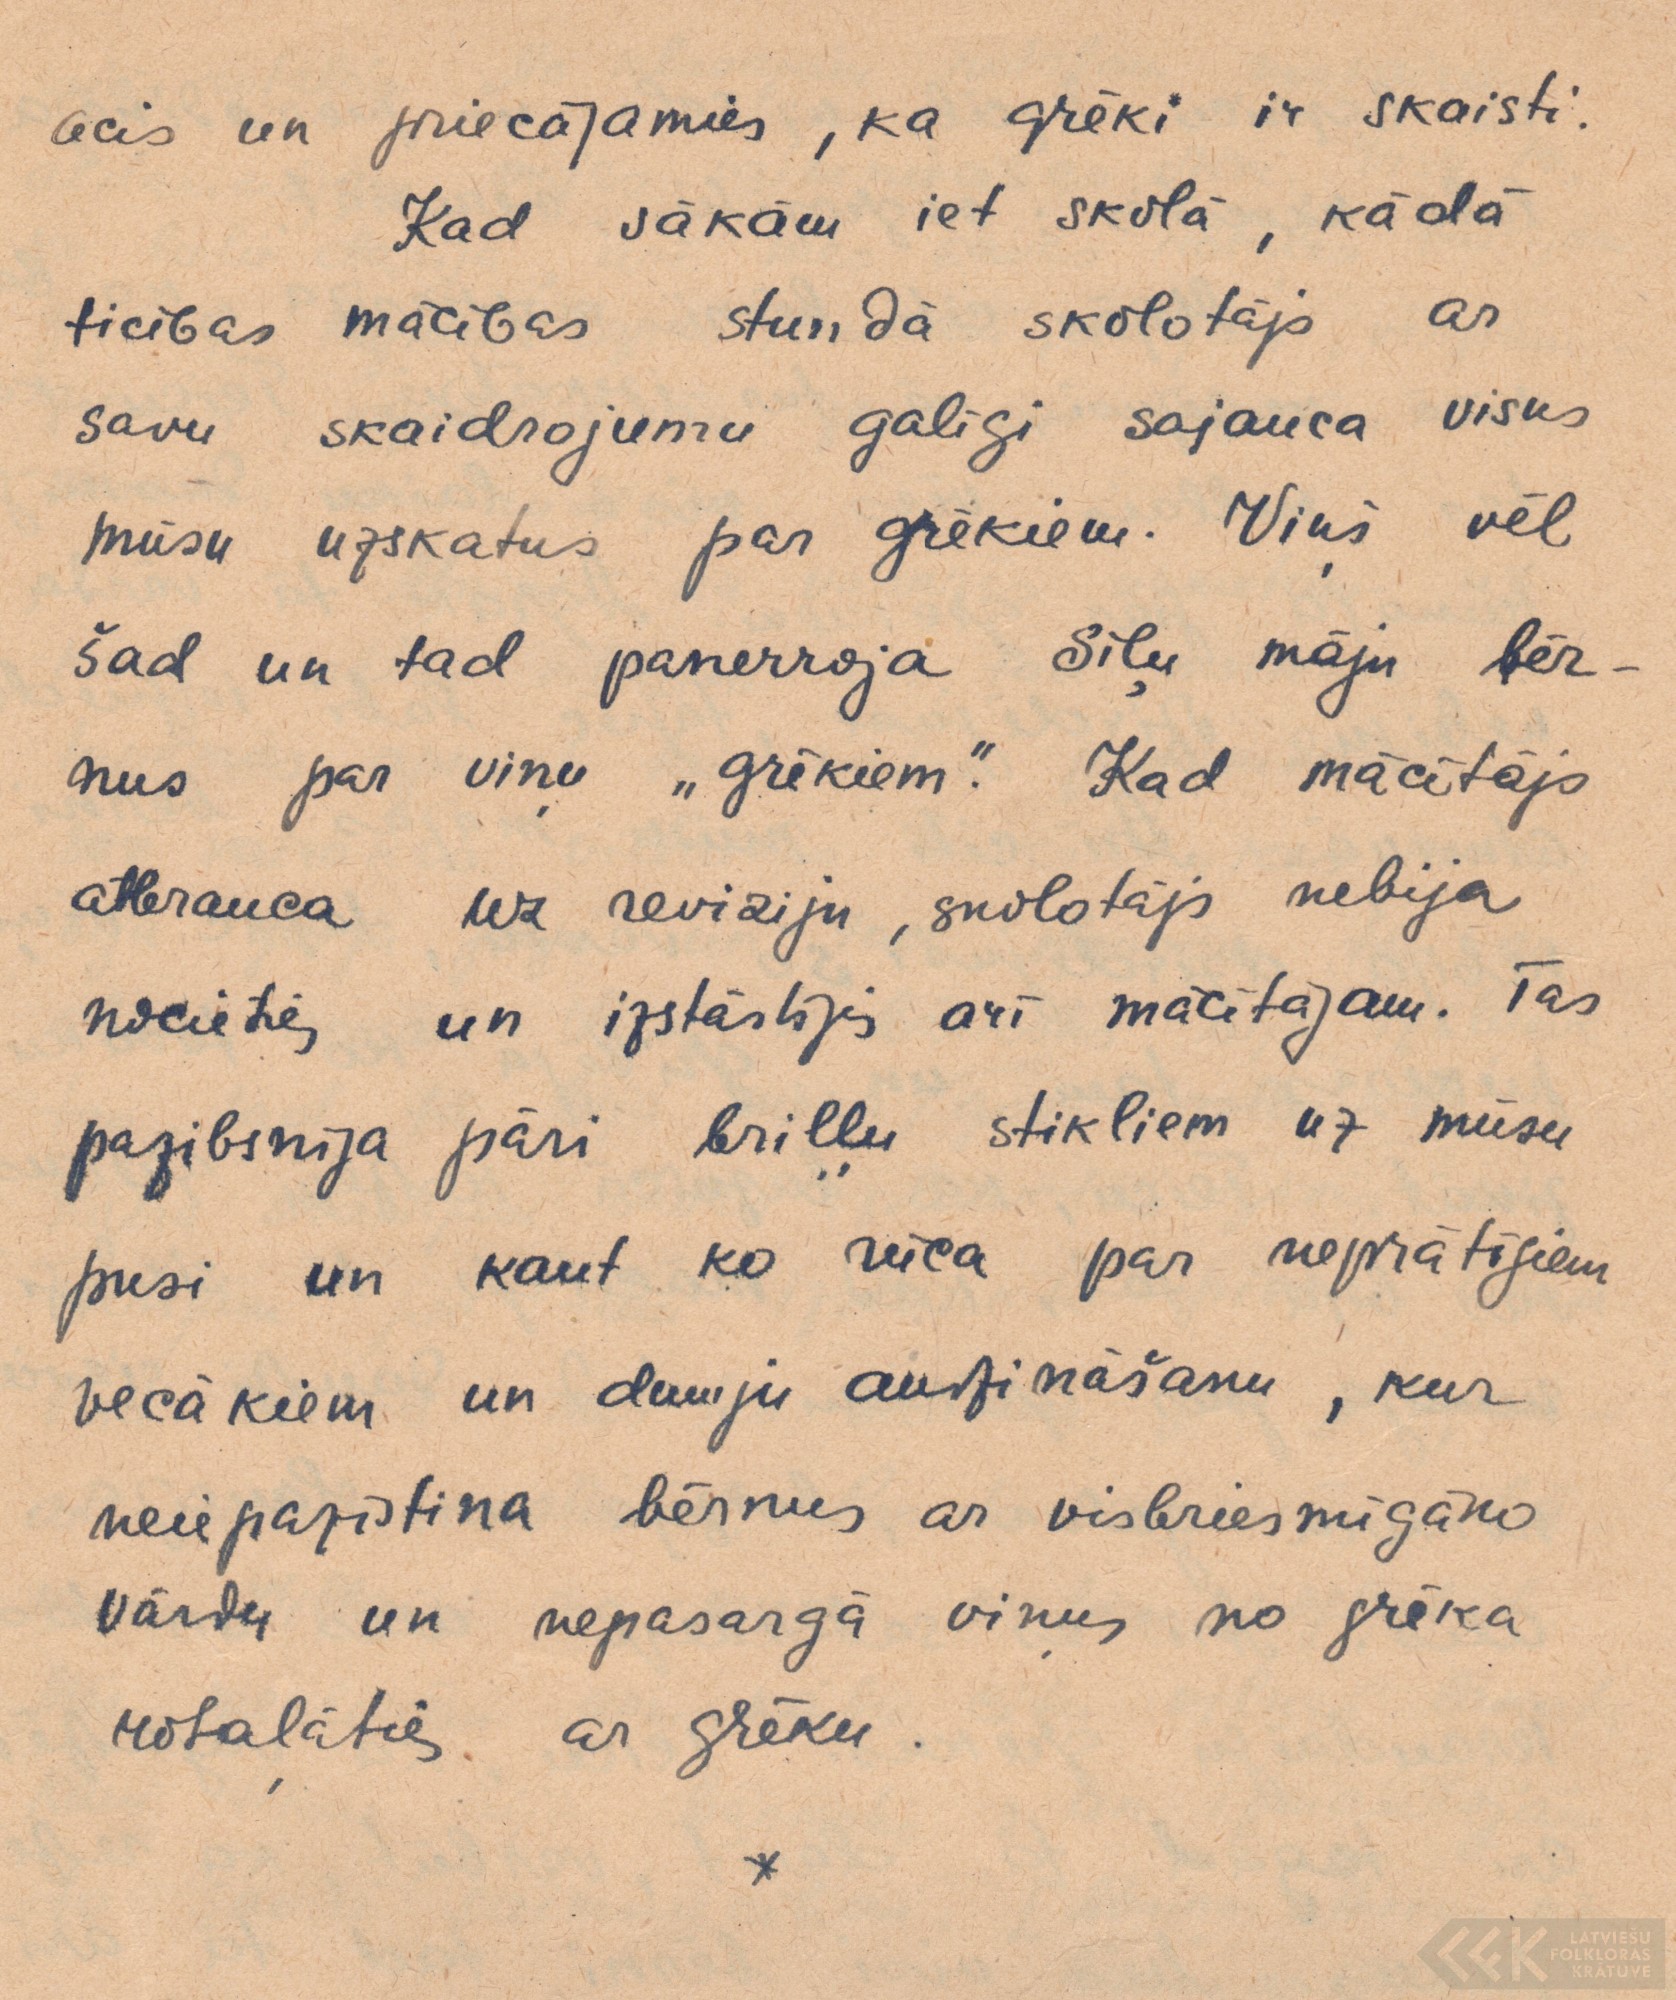 acis un priecājamies, ka grēki ir skaisti.
Kad sākām iet skolā, kādā
ticības mācības stundā skolotājs ar
savu skaidrojumu galīgi sajauca visus
mūsu uzskatus par grēkiem. Viņš vēl
šad un tad panerroja Siļu māju bēr-
nus par viņu „grēkiem". Kad mācītājs
atbrauca uz reviziju, skolotājs nebija
nocieties un izstāstījis arī mācītājam. Tas
pazibsnīja pāri briļļu stikliem uz mūsu
pusi un kaut ko rūca par neprātīgiem
vecākiem un dumju audzināšanu, kur
neiepazīstina bērnus ar visbriesmīgāko
vārdu un nepasargā viņus no grēka
rotaļāties ar grēku.
*
LATVIEŠU
FOLKLORAS
KRĀTUVE